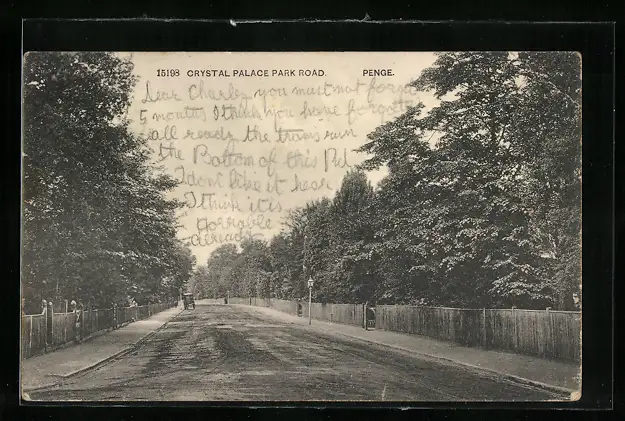 15198 CRYSTAL PALACE PARK ROAD. PENGE.
Dear Charles you must not
5 months I think you have
all ready the trams run
the Bottom of this
I dont like it hear
I think it is
Horrable
already